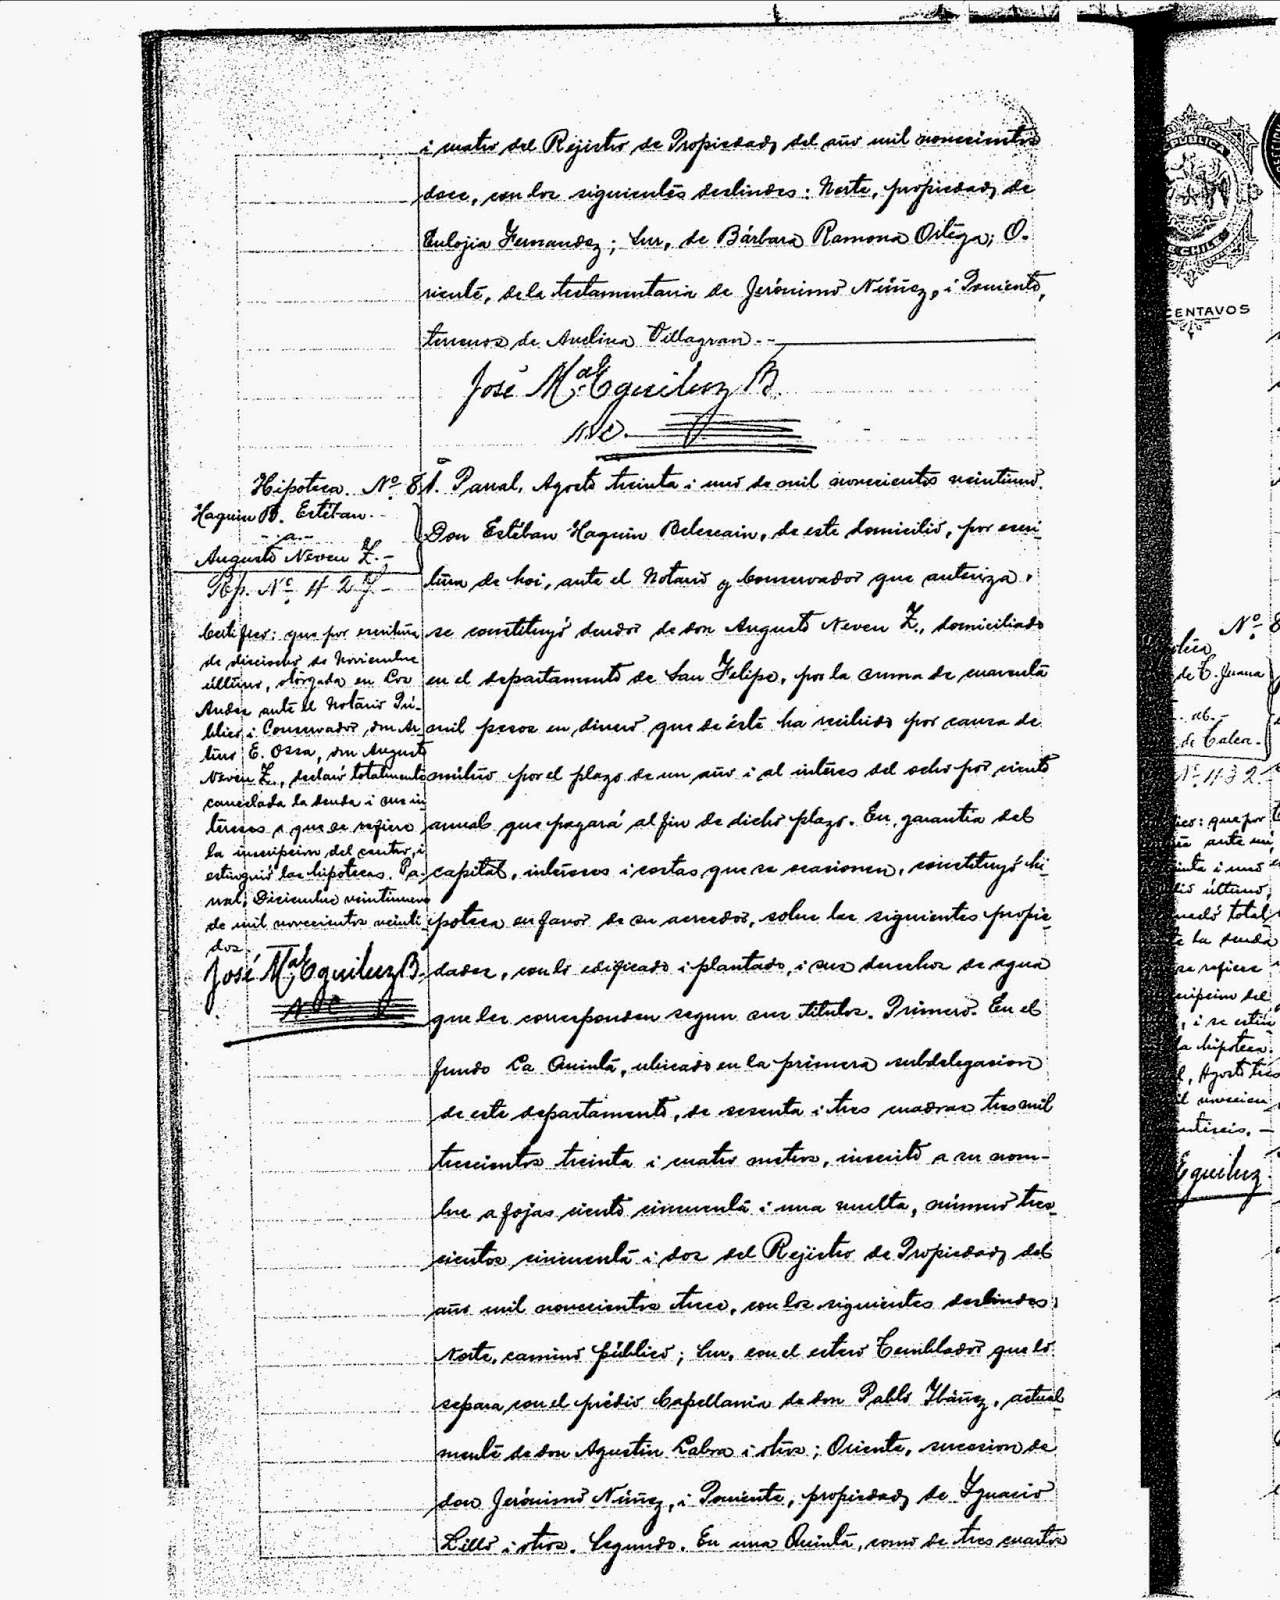 i cuatro del Rejistro de Propiedad, del año mil novecientos
doce, con los siguientes deslindes: Norte, propiedad de
Eulojia Fernandez; Sur, de Bárbara Ramona Ortega; O-
riente, de la testamentaria de Jerónimo Núñez, i Poniente,
terrenos de Avelina Villagran.-
José Ma. Eguiluz B.
NPC.
Hipoteca. No. 81.
Haquin B. Estéban.
-a-
Augusto Neveu Z.-
Rep. No. 427-
Certifico: que por escritura
de dieciocho de Noviembre
último, otorgada en Los
Andes ante el Notario Pú-
blico i Conservador, don Ar-
turo E. Ossa, don Augusto
Neveu Z., declaró totalmente
cancelada la deuda i sus in
tereses a que se refiere
la inscripcion del centro, i
estinguió las hipotecas. Pa-
rral, Diciembre veintinueve
de mil novecientos veinti
dos.
José Ma. Eguiluz B.
NPC
Parral, Agosto treinta i uno de mil novecientos veintiuno.
Don Estéban Haquin Belescain, de este domicilio, por escri-
tura de hoi, ante el Notario y Conservador que autoriza,
se constituyó deudor de don Augusto Neveu Z., domiciliado
en el departamento de San Felipe, por la suma de cuarenta
mil pesos en dinero que de éste ha recibido por causa de
mútuo por el plazo de un año i al intéres del ocho por ciento
anual que pagará al fin de dicho plazo. En garantia del
capital, intereses i costas que se ocasionen, constituyó hi-
poteca en favor de su acreedor, sobre las siguientes propie-
dades, con lo edificado i plantado, i sus derechos de agua
que les corresponden segun sus titulos. Primero. En el
fundo La Quinta, ubicado en la primera subdelegacion
de este departamento, de sesenta i tres cuadras tres mil
trescientos treinta i cuatro metros, inscrito a su nom-
bre a fojas ciento cincuenta i una vuelta, número tres-
cientos cincuenta i dos del Rejistro de Propiedad, del
año mil novecientos trece, con los siguientes deslindes:
Norte, camino público; Sur, con el estero Temblador que lo
separa con el prédio Capellania de don Pablo Ibáñez, actual-
mente de don Agustin Labra i otros; Oriente, sucesion de
don Jerónimo Núñez, i Poniente, propiedad, de Ignacio
Lillo i otros. Segundo. En una Quinta, como de tres cuartos
REPUBLICA
DE CHILE
CENTAVOS
No. 8
de T. Juana
ab.-
de Talca.-
No. 432.
que por
ante mi,
i uno
último,
total
la deuda
se refiere
del
i se estin
la hipoteca.
Agosto tres
Eguiluz